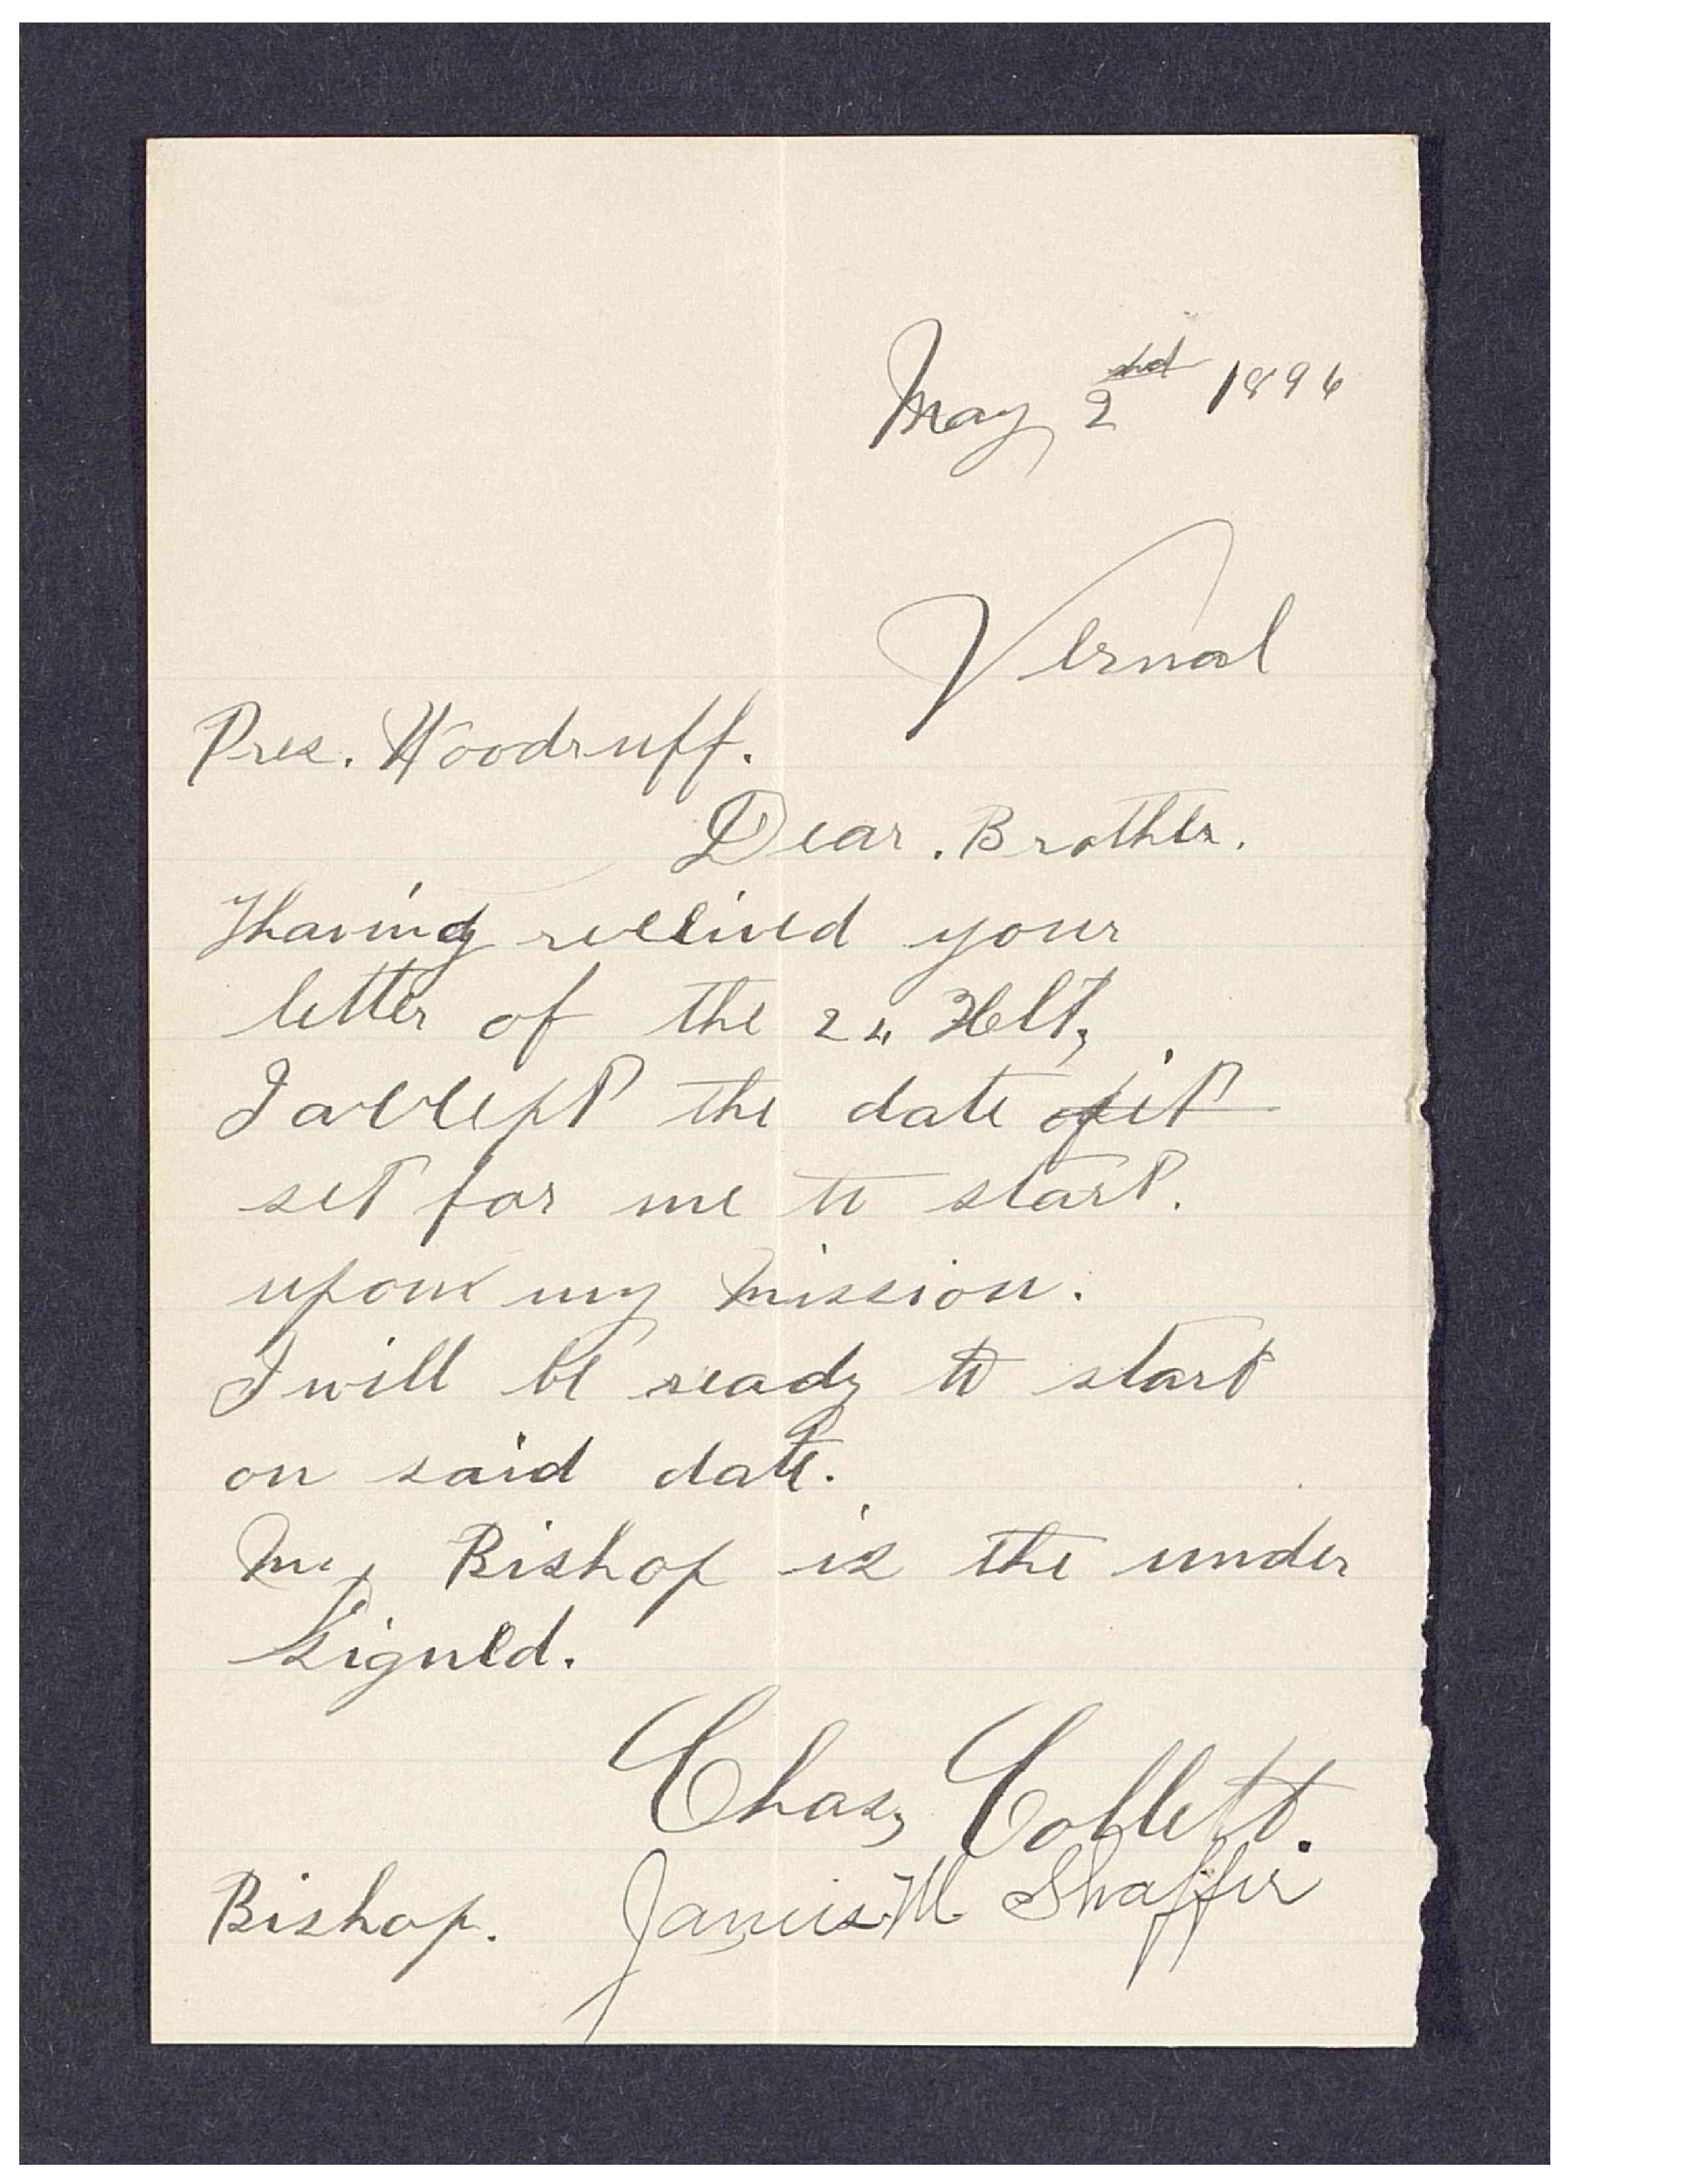 May 2nd 1896
Vernal
Pres. Woodruff.
Dear. Brother.
Having received your
letter of the 24
I accept the date of it
set for me to start.
upon my mission.
I will be ready to start
on said date.
My Bishop is the under
signed.
Chas, Collett.
Bishop. James M Shaffer